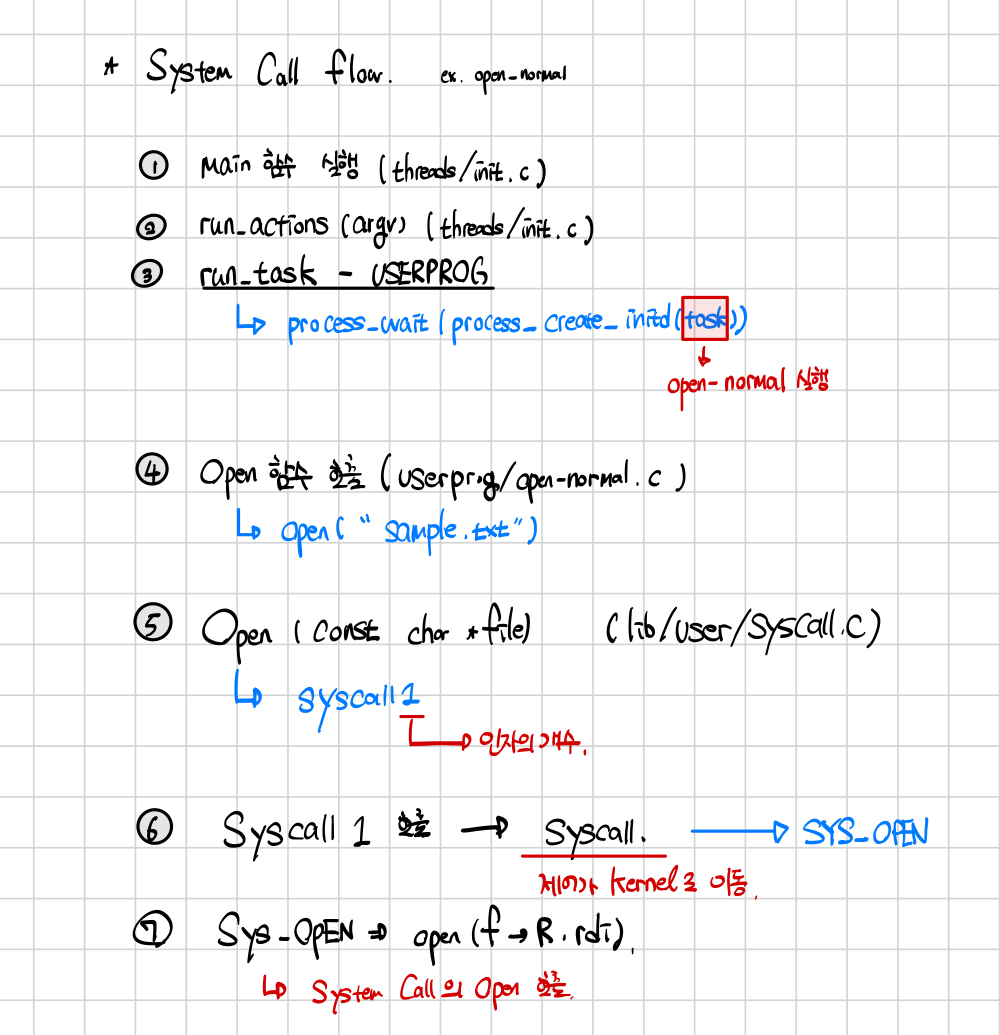 * System Call flow. ex. open-normal
① main 함수 실행 (threads/init.c)
② run_actions (argv) (threads/init.c)
③ run_task - USERPROG
↳ process_wait (process_create_initd(task))
↓
open-normal 실행
④ Open 함수 호출 (userprog/open-normal.c)
↳ open( "sample.txt")
⑤ Open (const char *file) (lib/user/syscall.c)
↳ syscall1
→ 인자의 개수.
⑥ Syscall 1 호출 → Syscall. → SYS_OPEN
제어가 kernel로 이동.
⑦ Sys_OPEN ⇒ open (f → R.rdi).
↳ System Call의 Open 호출.